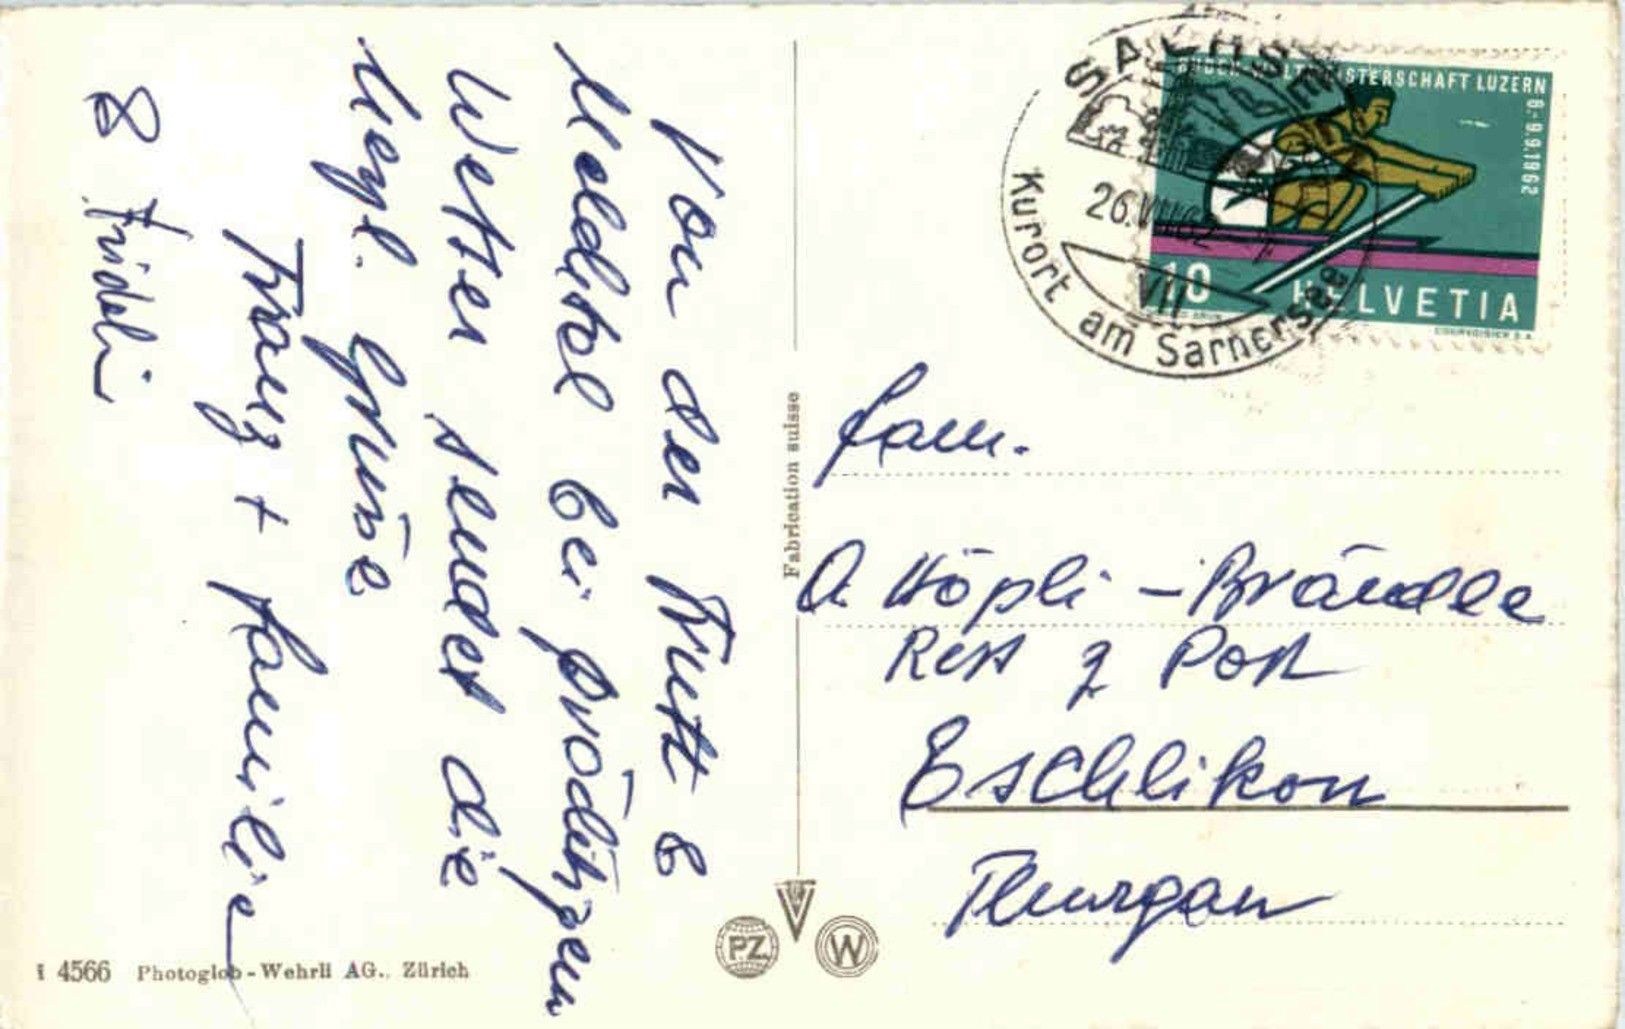 Von der Frutt &
Melchtal bei prächtigem
Wetter sendet die
herzl. Grüsse
Franz + Familie
& Fridli
Fabrication suisse
SACHSELN
Kurort am Sarnersee
26.VIII.62
VII
RUDER-WELTMEISTERSCHAFT LUZERN
6.-9.9.1962
10 HELVETIA
COURVOISIER S.A.
Fam.
A. Höpli - Brändle
Rest z Post
Eschlikon
Thurgau
PZ W
4566 Photoglob-Wehrli AG., Zürich